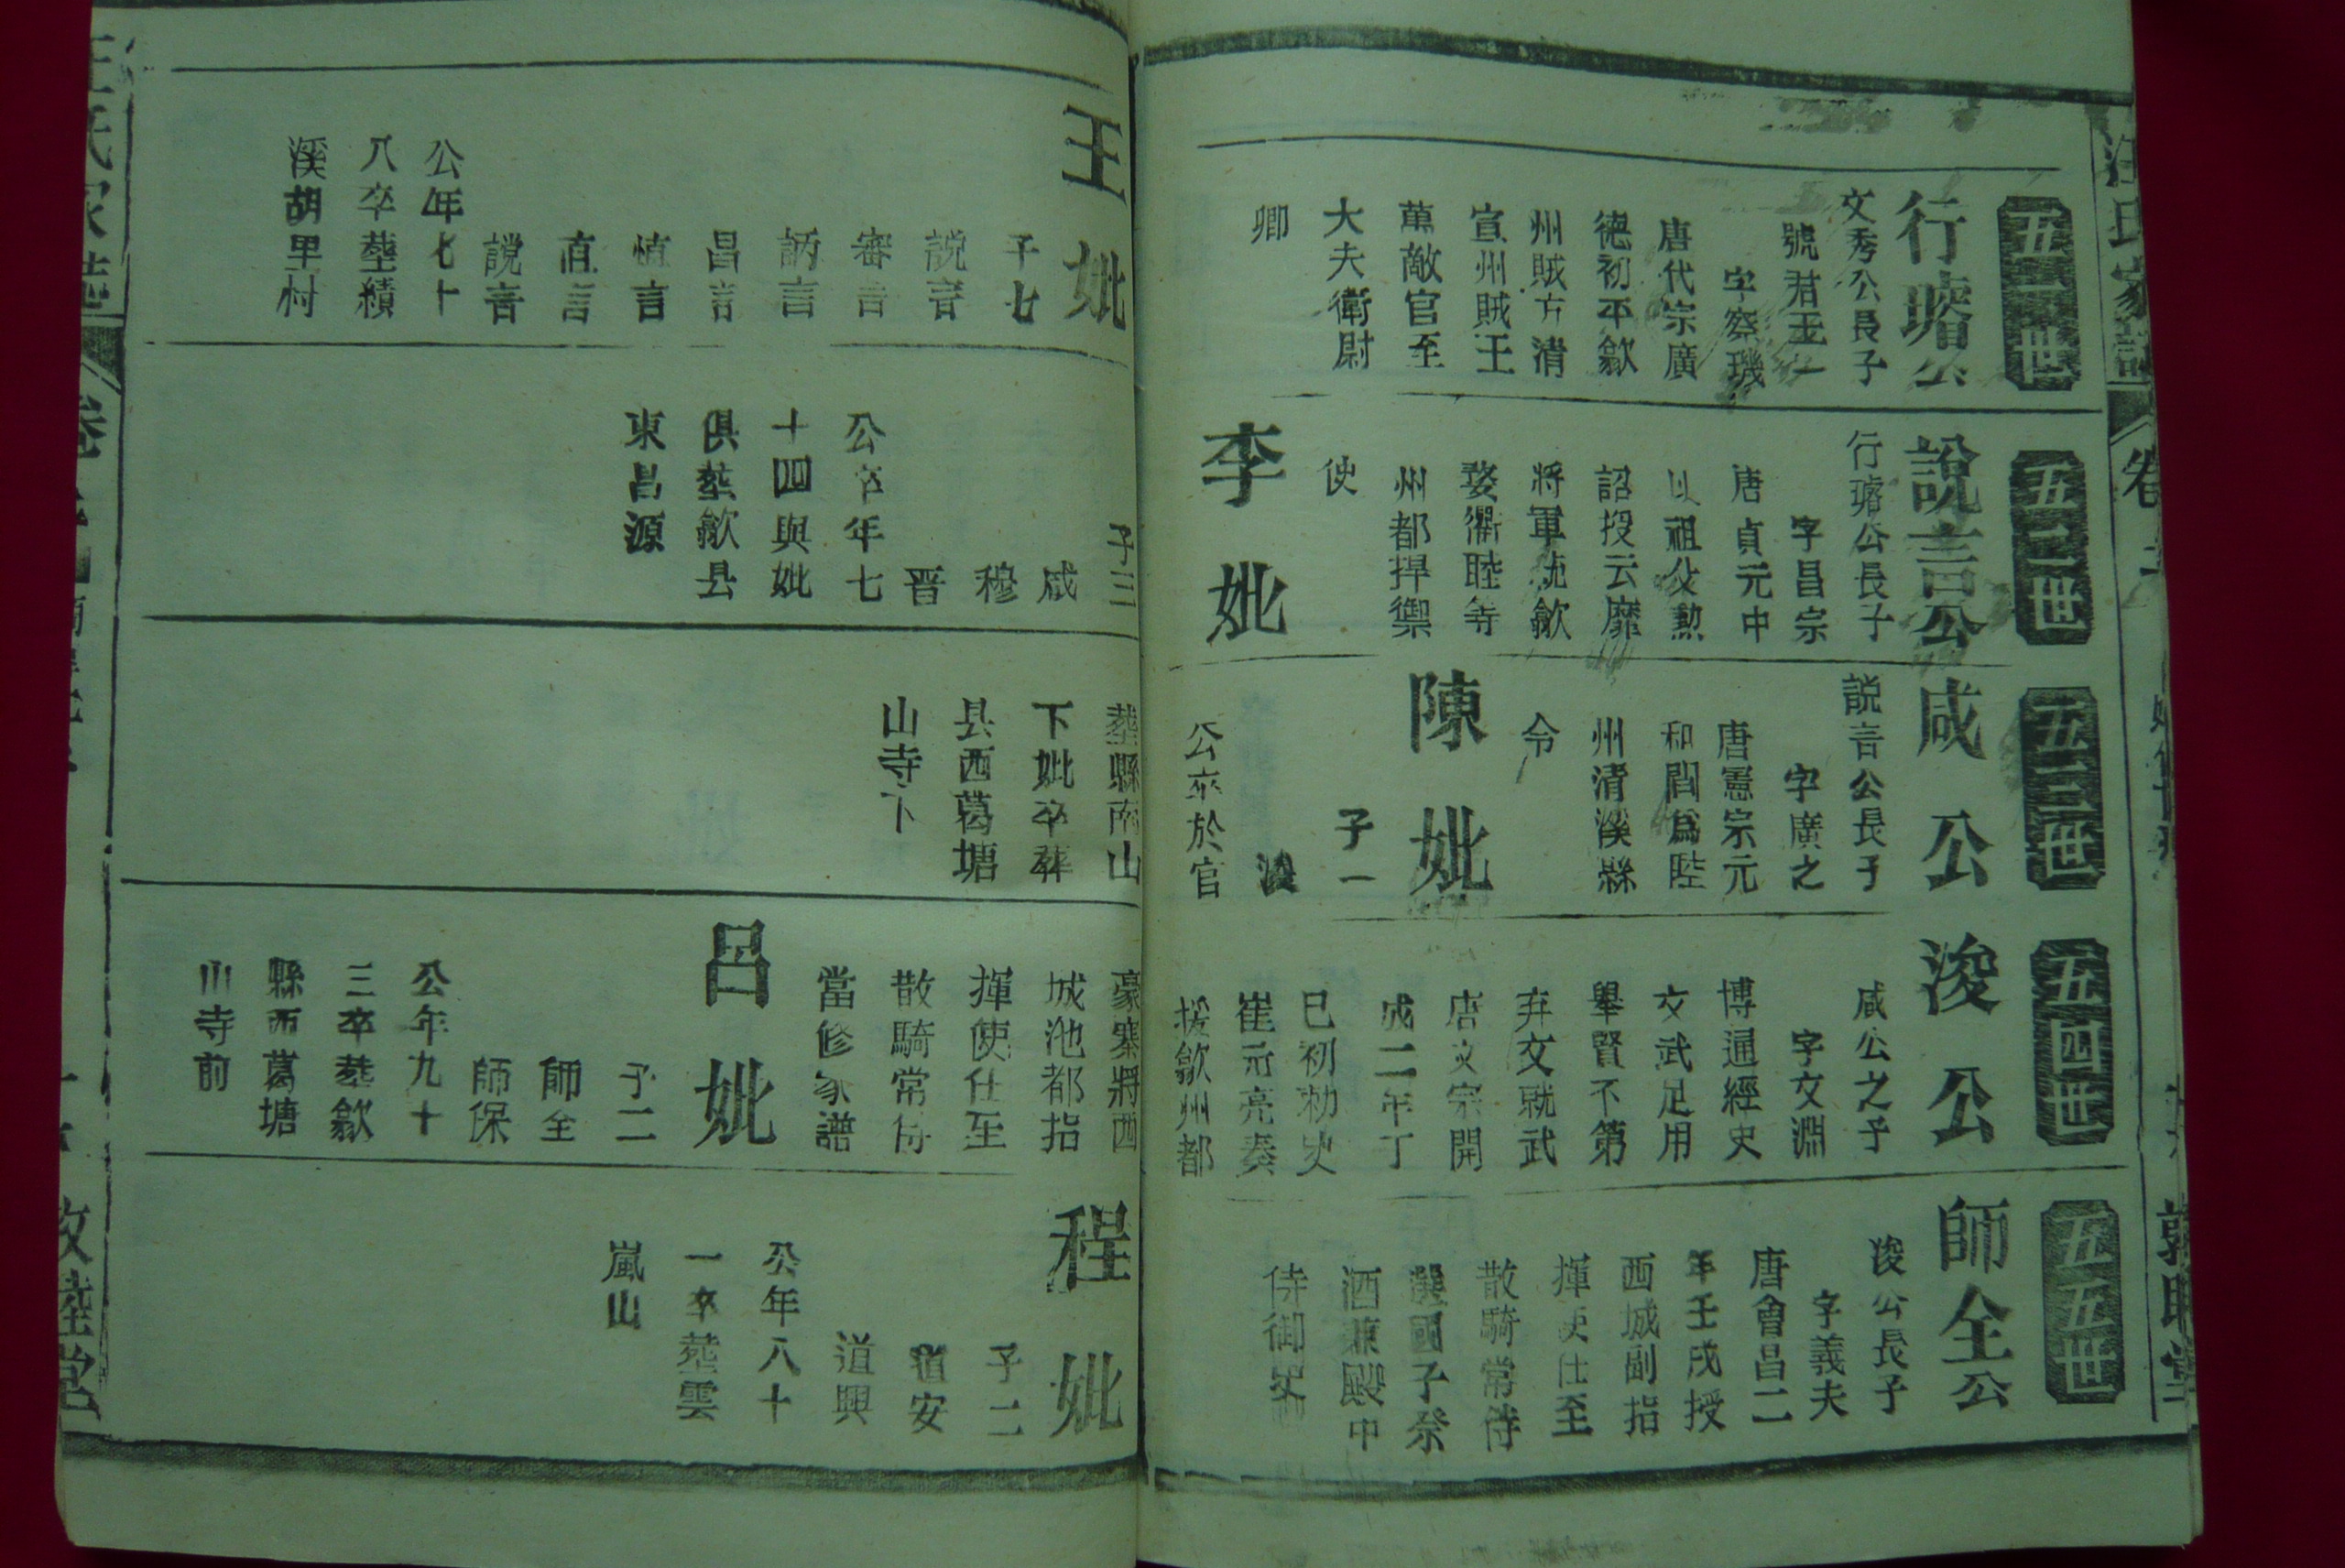 五一世
行璿公
文秀公長子
號君玉一
字察璣
唐代宗廣
德初平歙
州賊方清
宣州賊王
萬敵官至
大夫衛尉
卿
王妣
子七
說言
審言
訥言
昌言
慎言
直言
說言
公年七十
八卒塟績
溪胡里村
五二世
說言公
行璿公長子
字昌宗
唐貞元中
以祖父勲
詔授云麾
將軍統歙
婺衢睦等
州都捍禦
使
李妣
子三
咸
穆
晋
公卒年七
十四與妣
俱塟歙县
東昌源
五三世
咸公
說言公長子
字廣之
唐憲宗元
和間爲睦
州清溪縣
令
陳妣
子一
浚
公卒於官
塟縣南山
下妣卒葬
县西葛塘
山寺下
五四世
浚公
咸公之子
字文淵
博通經史
文武足用
舉賢不第
弃文就武
唐文宗開
成二年丁
巳初勑史
崔元亮奏
援歙州都
豪寨將西
城池都指
揮使仕至
散騎常侍
當修家譜
呂妣
子二
師全
師保
公年九十
三卒塟歙
縣西葛塘
山寺前
五五世
師全公
浚公長子
字義夫
唐會昌二
年壬戌授
西城副指
揮使仕至
散騎常侍
選國子祭
酒兼殿中
侍御史
程妣
子二
道安
道興
公年八十
一卒塟雲
嵐山
汪氏家譜
敦睦堂